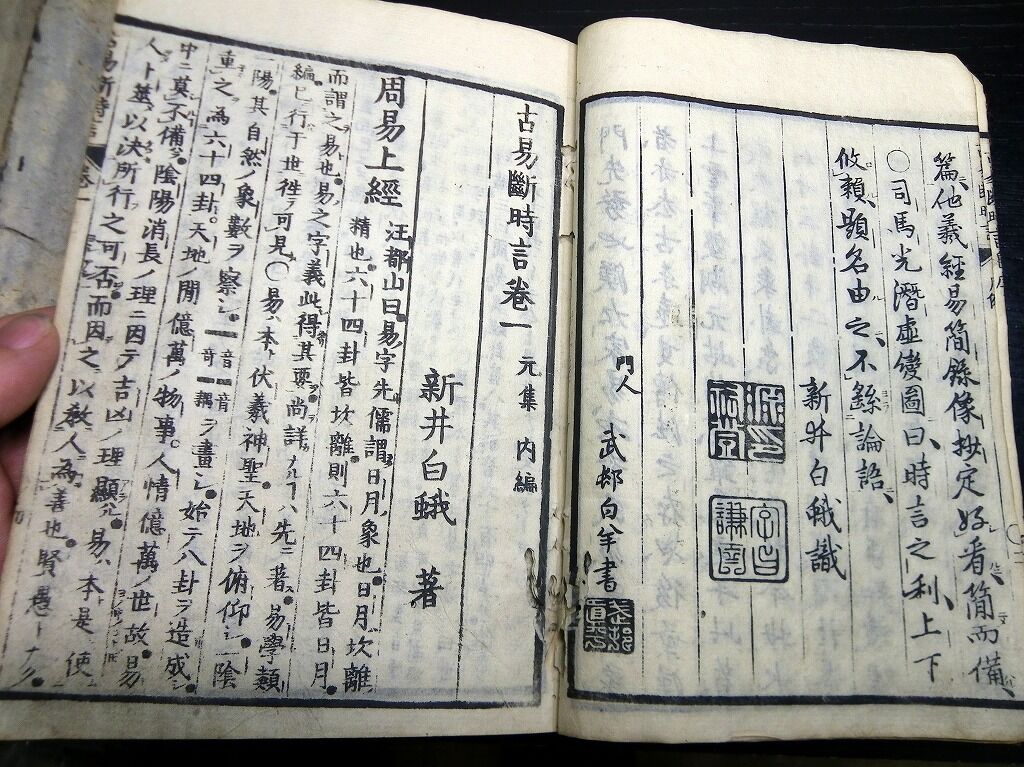 篇、他義經易簡錄像抄定、好看、簡而備、
〇司馬光潛虛變圖曰、時言之利、上下
攸頼、顯名由之、不繇論語、
新井白蛾識
門人 武邨白羊書
古易斷時言卷一 元集 内編
新井白蛾 著
周易上經 汪都山曰易字先儒謂日月象也日月坎離
精也六十四卦皆坎離則六十四卦皆日月
而謂之易也易之字義此得其要尚詳ナルヿハ先ニ著ス易學類
編已行于世徃可見〇易ハ本ト伏義神聖天地ヲ俯仰シ陰
陽其自然ノ象數ヲ察シ音一音一耦ヲ畫シ始テ八卦ヲ造成シ
重之為六十四卦天地ノ間億萬ノ物事人情億萬ノ世故易
中ニ莫不備陰陽消長ノ理ニ因テ吉凶ノ理顯ル易ハ本是使
人卜筮以決所行之可否而因之以敎人為善也賢愚トナク